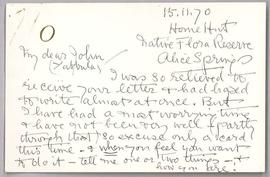 15.11.70
Home Hut
Native Flora Reserve
Alice Springs
My dear John
I was so relieved to
receive your letter & had hoped
to write almost at once. But
I have had a most worrying time
& have not been very well (partly
through that) so excuse only a card
this time - & when you feel you want
to do it - tell me one or two things - &
how you are.